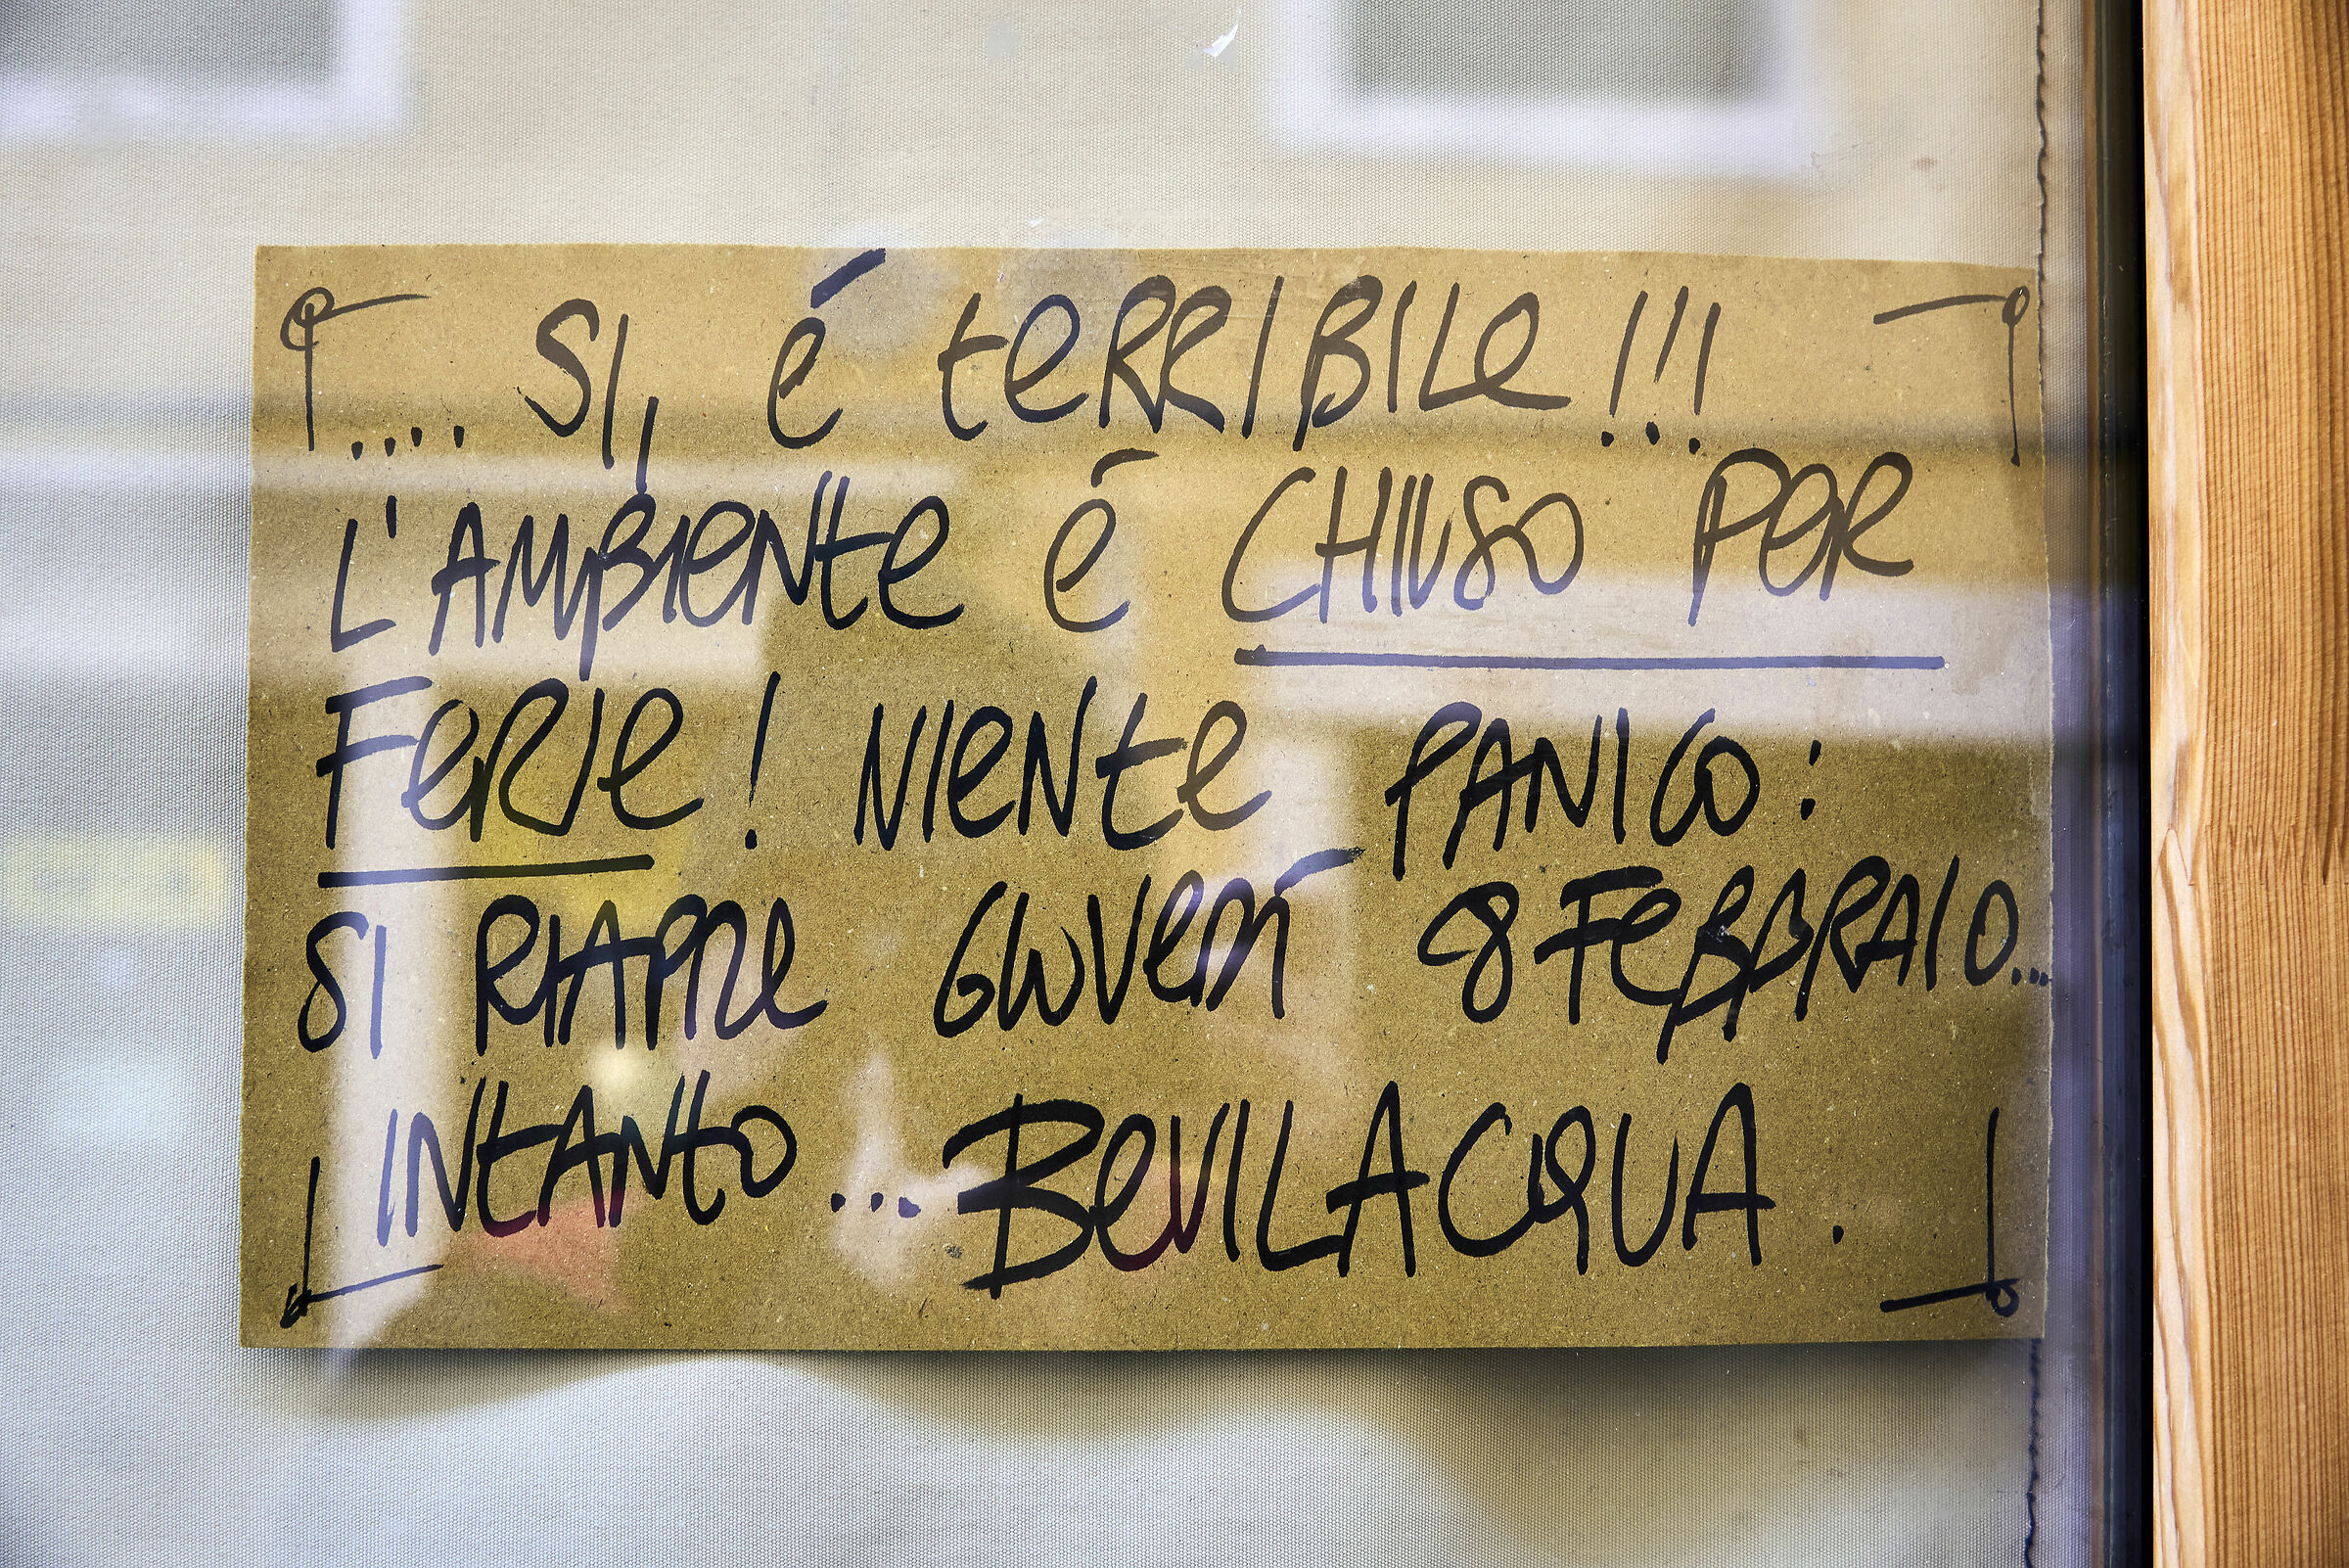 .... SI, é teRRIBILe !!!
L'AMBIENte é CHIUSO PeR
FeRIe! NIeNte PANICO:
SI RIAPRE GIOVEDÍ 8 FeBBRAIO...
INtANtO... BeVILACQUA.